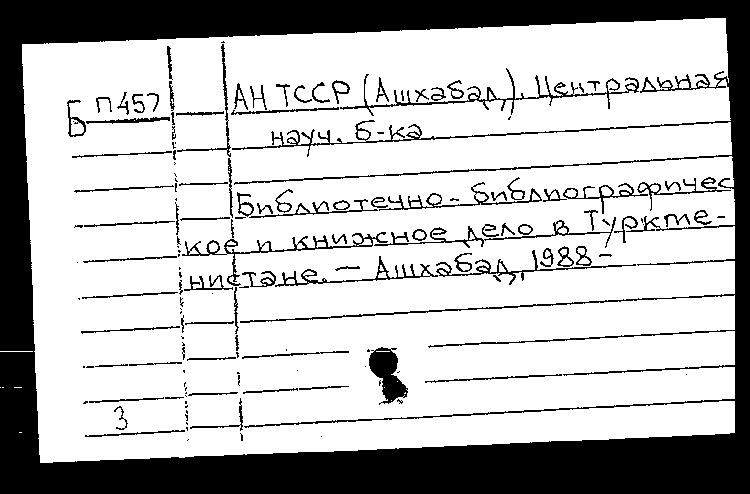 Б П457 АН ТССР (Ашхабад). Центральная
науч. б-ка.
Библиотечно-библиографичес
кое и книжное дело в Туркме-
нистане. — Ашхабад, 1988-
3